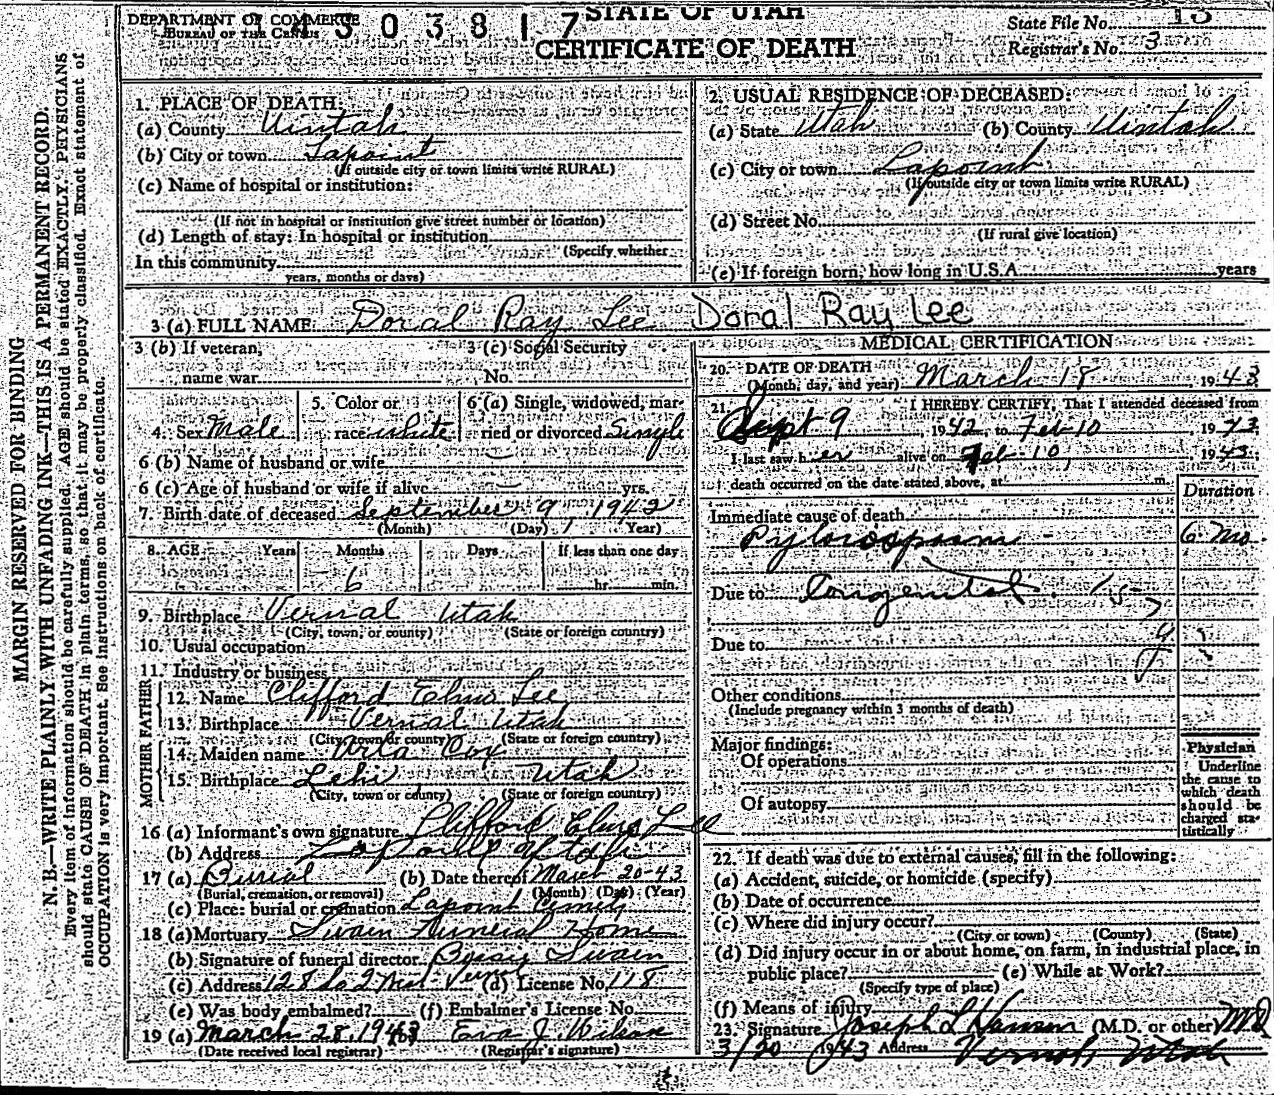 DEPARTMENT OF COMMERCE
BUREAU OF THE CENSUS
3 0 3 8 1 7
STATE OF UTAH
CERTIFICATE OF DEATH
State File No. 13
Registrar's No. 3
MARGIN RESERVED FOR BINDING
N. B.—WRITE PLAINLY WITH UNFADING INK—THIS IS A PERMANENT RECORD.
Every item of information should be carefully supplied. AGE should be stated EXACTLY. PHYSICIANS
should state CAUSE OF DEATH in plain terms, so that it may be properly classified. Exact statement of
OCCUPATION is very important. See instructions on back of certificate.
1. PLACE OF DEATH:
(a) County Uintah
(b) City or town Lapoint
(If outside city or town limits write RURAL)
(c) Name of hospital or institution:
(If not in hospital or institution give street number or location)
(d) Length of stay: In hospital or institution
(Specify whether
In this community
years, months or days)
2. USUAL RESIDENCE OF DECEASED:
(a) State Utah (b) County Uintah
(c) City or town Lapoint
(If outside city or town limits write RURAL)
(d) Street No.
(If rural give location)
(e) If foreign born, how long in U.S.A. years
3 (a) FULL NAME: Doral Ray Lee Doral Ray Lee
3 (b) If veteran, 3 (c) Social Security
name war No.
4. Sex Male 5. Color or race white 6 (a) Single, widowed, married or divorced Single
6 (b) Name of husband or wife
6 (c) Age of husband or wife if alive yrs.
7. Birth date of deceased September 9, 1942
(Month) (Day) (Year)
8. AGE Years Months Days If less than one day
6 hr. min.
9. Birthplace Vernal Utah
(City, town, or county) (State or foreign country)
10. Usual occupation
11. Industry or business
FATHER
12. Name Clifford Elmo Lee
13. Birthplace Vernal Utah
(City, town or county) (State or foreign country)
MOTHER
14. Maiden name Cox
15. Birthplace Lehi Utah
(City, town or county) (State or foreign country)
16 (a) Informant's own signature Clifford Elmo Lee
(b) Address Lapoint Utah
17 (a) Burial (b) Date thereof March 20-43
(Burial, cremation, or removal) (Month) (Day) (Year)
(c) Place: burial or cremation Lapoint
18 (a) Mortuary Swain Funeral Home
(b) Signature of funeral director Swain
(c) Address (d) License No. 118
(e) Was body embalmed? (f) Embalmer's License No.
19 (a) March 28, 1943 (b) Eva J. Wilson
(Date received local registrar) (Registrar's signature)
MEDICAL CERTIFICATION
20. DATE OF DEATH
(Month, day, and year) March 18, 1943
21. I HEREBY CERTIFY, That I attended deceased from
Sept 9 1942, to Feb 10 1943
I last saw h er alive on Feb 10, 1943;
death occurred on the date stated above, at m.
Duration
Immediate cause of death
Pylorospasm - 6 Mo.
Due to Congenital
Due to
Other conditions
(Include pregnancy within 3 months of death)
Major findings:
Of operations
Of autopsy
Physician
Underline
the cause to
which death
should be
charged sta-
tistically
22. If death was due to external causes, fill in the following:
(a) Accident, suicide, or homicide (specify)
(b) Date of occurrence
(c) Where did injury occur?
(City or town) (County) (State)
(d) Did injury occur in or about home, on farm, in industrial place, in
public place? (e) While at Work?
(Specify type of place)
(f) Means of injury
23. Signature Joseph L Hansen (M.D. or other) MD
3/20 1943 Address Vernal, Utah